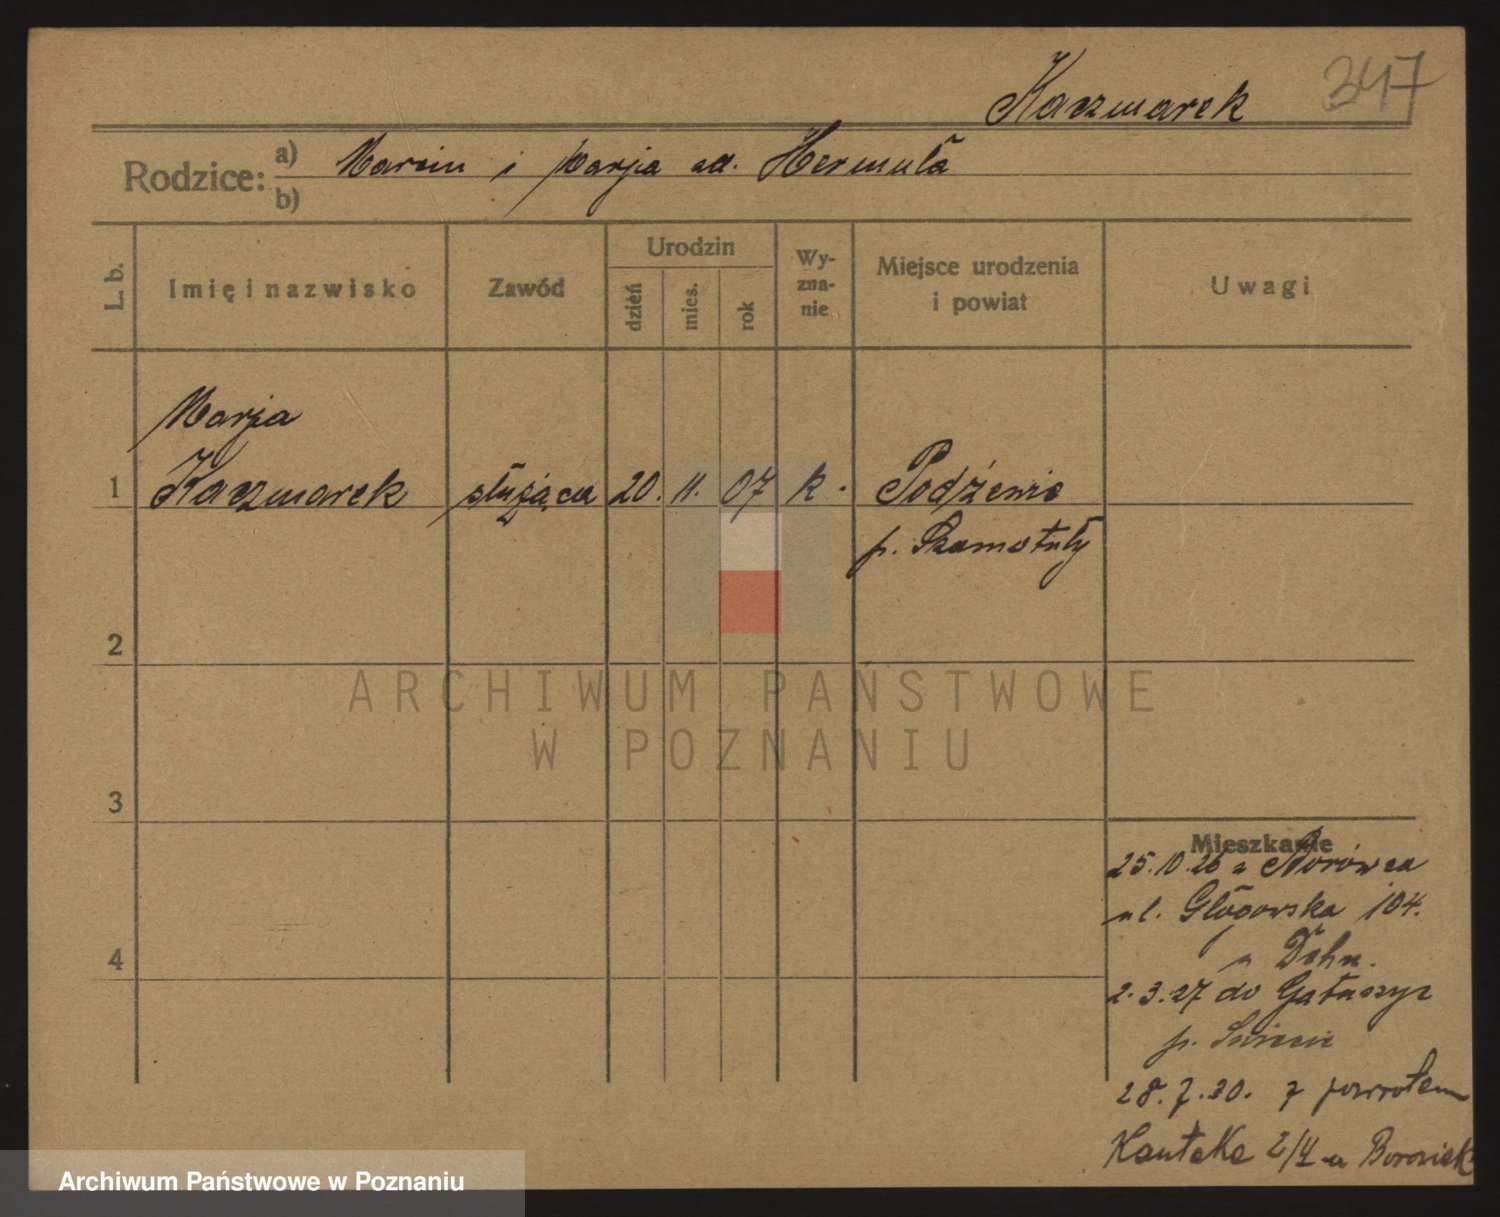 347
Kaczmarek
Rodzice: a) Marcin i Marja ad. Hermuła
b)
L. b.
Imię i nazwisko
Zawód
Urodzin
dzień
mies.
rok
Wy-
zna-
nie
Miejsce urodzenia
i powiat
Uwagi
Marja
1 Kaczmarek służąca 20. 11. 07 k.
p. Szamotuły
2
3
4
ARCHIWUM PAŃSTWOWE
W POZNANIU
Mieszkanie
25.10.26 z
ul. Głogowska 104.
2.3.27 do
p.
28.7.30. z powrotem
2/4 u
Archiwum Państwowe w Poznaniu